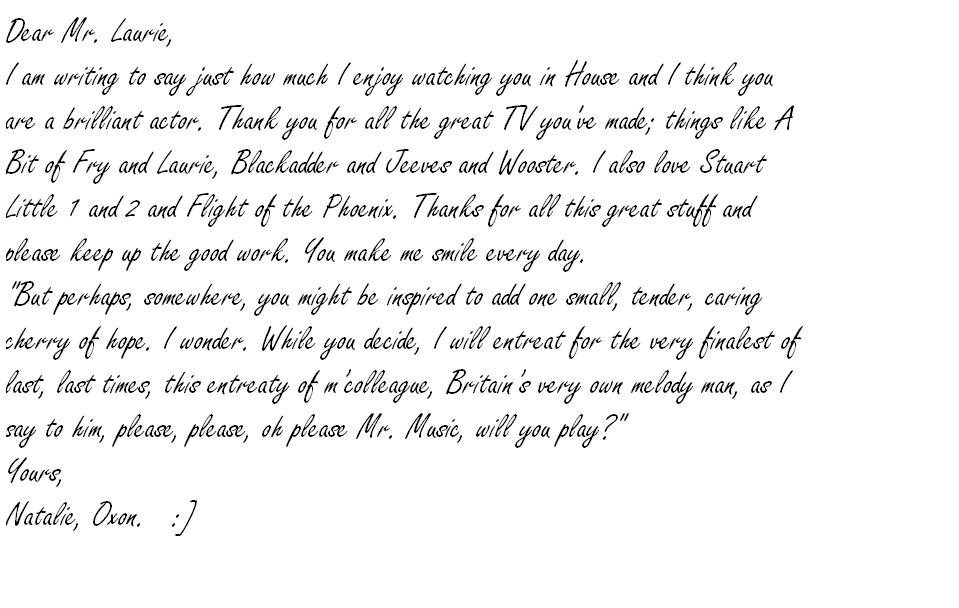 Dear Mr. Laurie,
I am writing to say just how much I enjoy watching you in House and I think you
are a brilliant actor. Thank you for all the great TV you've made; things like A
Bit of Fry and Laurie, Blackadder and Jeeves and Wooster. I also love Stuart
Little 1 and 2 and Flight of the Phoenix. Thanks for all this great stuff and
please keep up the good work. You make me smile every day.
"But perhaps, somewhere, you might be inspired to add one small, tender, caring
cherry of hope. I wonder. While you decide, I will entreat for the very finalest of
last, last times, this entreaty of m'colleague, Britain's very own melody man, as I
say to him, please, please, oh please Mr. Music, will you play?"
Yours,
Natalie, Oxon. :]